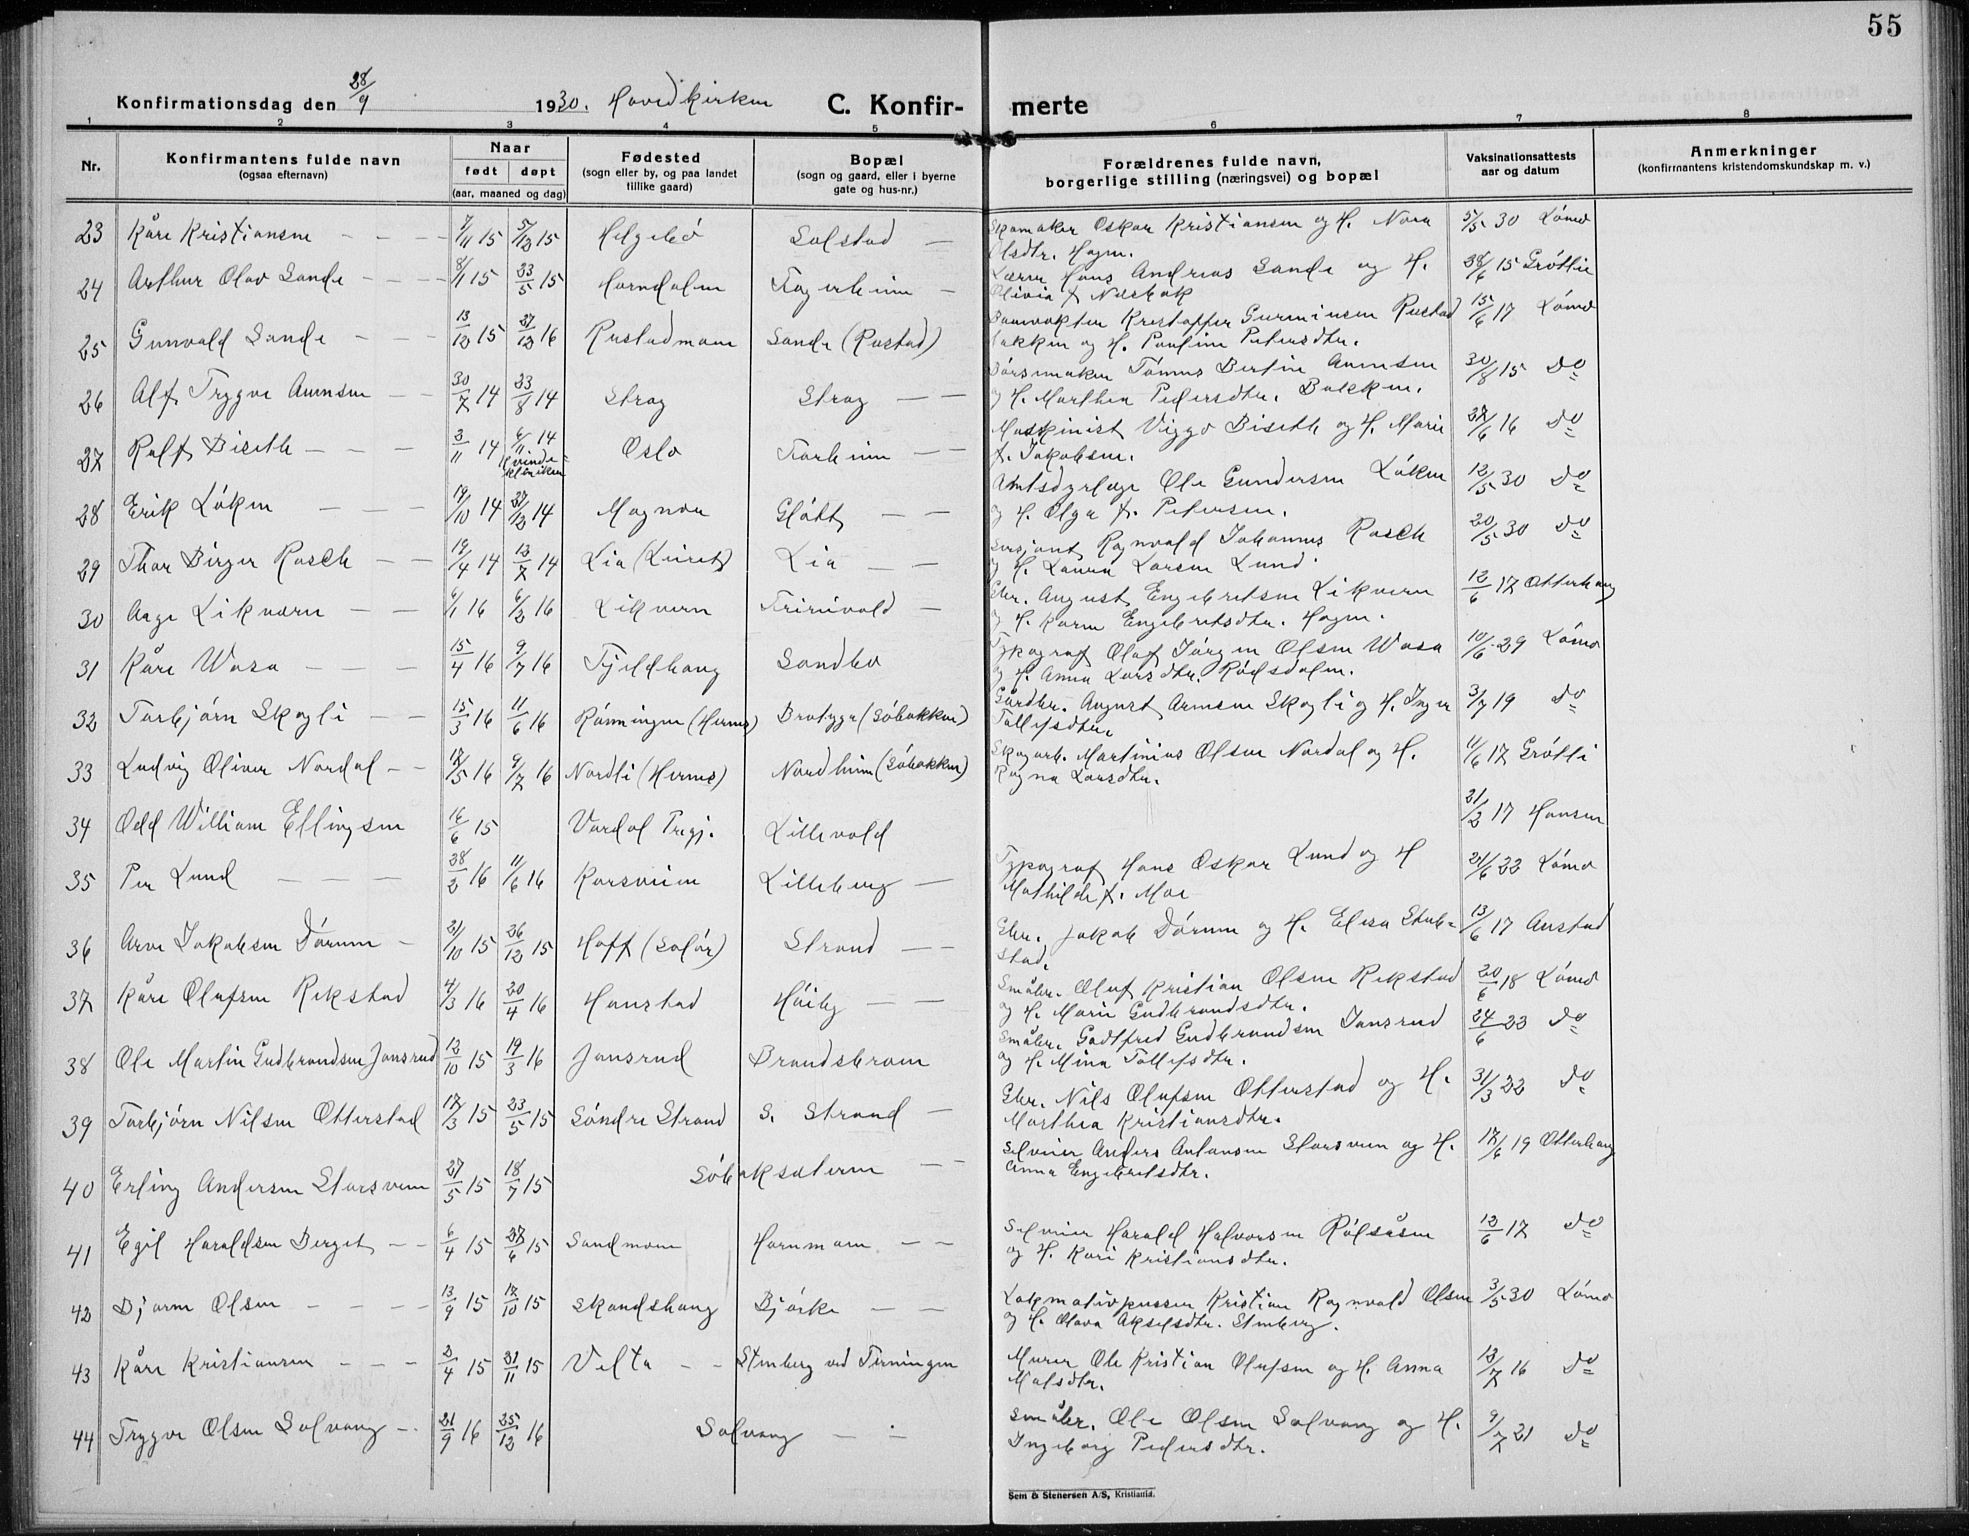 55
Konfirmationsdag den 28/9 1930. Hovedkirken C. Konfir- merte
1 2 3 4 5 6 7 8
Nr. Konfirmantens fulde navn (ogsaa efternavn) Naar født døpt (aar, maaned og dag) Fødested (sogn eller by, og paa landet tillike gaard) Bopæl (sogn og gaard, eller i byerne gate og hus-nr.) Forældrenes fulde navn, borgerlige stilling (næringsvei) og bopæl Vaksinationsattests aar og datum Anmerkninger (konfirmantens kristendomskundskap m. v.)
23 Kåre Kristiansen — — 7/11 15 5/12 15 Helgebö Solstad — Skomaker Oskar Kristiansen og H. Nora 5/5 30 Lömo
Olsdtr. Hagen.
24 Arthur Olav Sande — — 8/1 15 23/5 15 Horndalen Fagerheim — Hans Andreas Sande og H. 28/6 15 Gröttli
Olivia f.
25 Gunvald Sande — — — 13/12 15 27/12 16 Rustadmoen Sande (Rustad) Kristoffer Rustad 15/6 17 Lömo
bakken og H. Pauline Petersdtr.
26 Alf Trygve Arnesen — — 30/7 14 23/8 14 Strag Strag — — Börsemaker Bertin Arnesen 30/8 15 do
og H. Marthea Pedersdtr. Bakken.
27 Ralf Biseth — — — 3/11 14 6/11 14 Kvindeklinikken Oslo Torheim — Maskinist Viggo Biseth og H. Marie 27/6 16 do
f. Jakobsen.
28 Erik Löken — — — 19/10 14 27/12 14 Magnor Glött — — Amtsdyrlæge Ole Gundersen Löken 12/5 30 do
og H. Olga f. Petersen.
29 Thor Birger Rasch — — 19/4 14 12/7 14 Lia Lia — — Sersjant Ragnvald Johannes Rasch 20/5 30 do
og H. Laura Larsen Lund.
30 Aage Likvern — — 6/1 16 6/2 16 Likvern — Gbr. August Engebretsen Likvern 12/6 17 Otterhaug
og H. Karen Engebretsdtr. Hagen.
31 Kåre Wasa — — — 15/4 16 9/7 16 Fjeldhaug Sandbo Typograf Olaf Jörgen Olsen Wasa 10/6 29 Lömo
og H. Anna Larsdtr. Rödsdalen.
32 Torbjörn Skogli — — 15/3 16 11/6 16 Rönningen (Hernes) Bratygr (Söbakken) Gårdbr. August Arnesen Skogli og H. Inger 3/7 19 do
Tollefsdtr.
33 Ludvig Oliver Nordal — — 17/5 16 9/7 16 Nordli (Hernes) Nordheim (Söbakken) Skogarb. Martinius Olsen Nordal og H. 11/6 17 Gröttli
Ragna Larsdtr.
34 Odd William Ellingsen 16/6 15 Vardal Prgj. Lillevold 21/2 17 Hansen
35 Per Lund — — — 28/2 16 11/6 16 Korsveien Lilleberg — Typograf Hans Oskar Lund og H 21/6 22 Lömo
Mathilde f. Moe
36 Arve Jakobsen Dörum — 31/10 15 26/12 15 Hoff (Solör) Strand — — Gbr. Jakob Dörum og H. Elisa Stub- 13/6 17 Austad
stad.
37 Kåre Olufsen Rikstad 4/3 16 20/4 16 Hanstad Höiby — — Småbr. Oluf Kristian Olsen Rikstad 20/6 18 Lömo
og H. Marie Gudbrandsdtr.
38 Ole Martin Gudbrandsen Jansrud 12/10 15 19/3 16 Jansrud Brandsbraten Småbr. Godtfred Gudbrandsen Jansrud 24/6 23 do
og H. Mina Tollefsdtr.
39 Torbjörn Nilsen Otterstad 17/3 15 23/5 15 Söndre Strand S. Strand — Gbr. Nils Olufsen Otterstad og H. 31/3 22 do
Marthea Kristiansdtr.
40 Erling Andersen Storsveen 27/5 15 18/7 15 Söbaksæteren — — Selveier Anders Antonsen Storsveen og H. 17/6 19 Otterhaug
Anna Engebretsdtr.
41 Egil Haraldsen Berget — — 6/4 15 27/6 15 Sandmoen Hornmoen — — Selveier Harald Halvorsen Rölsåsen 12/6 17 do
og H. Kari Kristiansdtr.
42 Bjarne Olsen — — — — 13/9 15 17/10 15 Skandshaug Bjørke — — Lokmotivpusser Kristian Ragnvald Olsen 3/5 30 Lömo
og H. Olava Akselsdtr. Stenberg.
43 Kåre Kristiansen — — — 2/4 15 21/11 15 Velta — — Stenberg ved Terningen Murer Ole Kristian Olufsen og H. Anna 13/7 16 do
Matsdtr.
44 Trygve Olsen Solvang — 21/9 16 25/12 16 Solvang — — Småbr. Ole Olsen Solvang og H. 9/7 21 do
Ingeborg Pedersdtr.
Sem & Stenersen A/S, Kristiania.